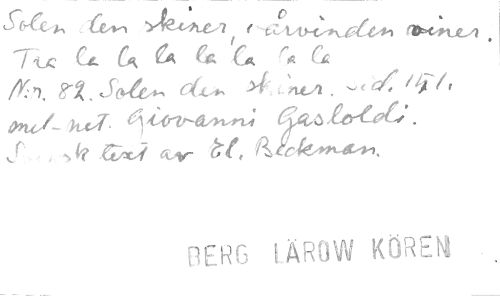 Solen den skiner, vårvinden viner.
Tra la la la la la la la
N:r. 82. Solen den skiner. sid. 151.
mel-net. Giovanni Gasloldi.
Svensk text av El. Beckman.
BERG LÄROW KÖREN